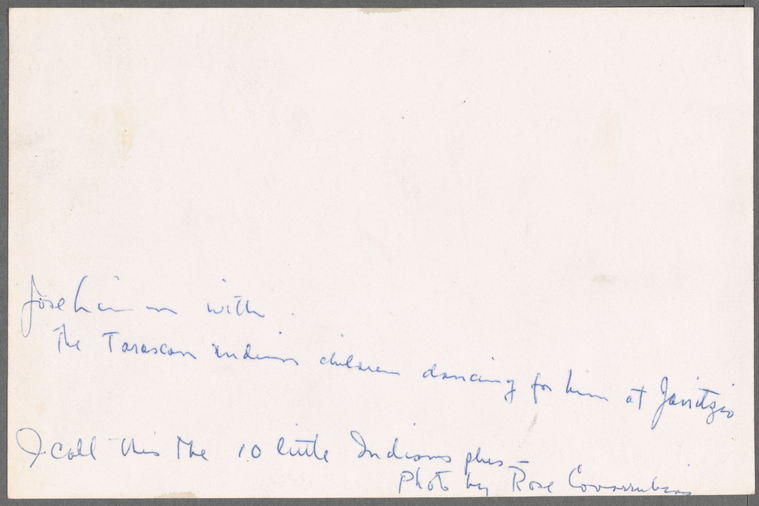 Jose Limon with
The Tarascan indians children dancing for him at Janitzio
I call this The 10 little Indians plus –
Photo by Rose Covarrubias